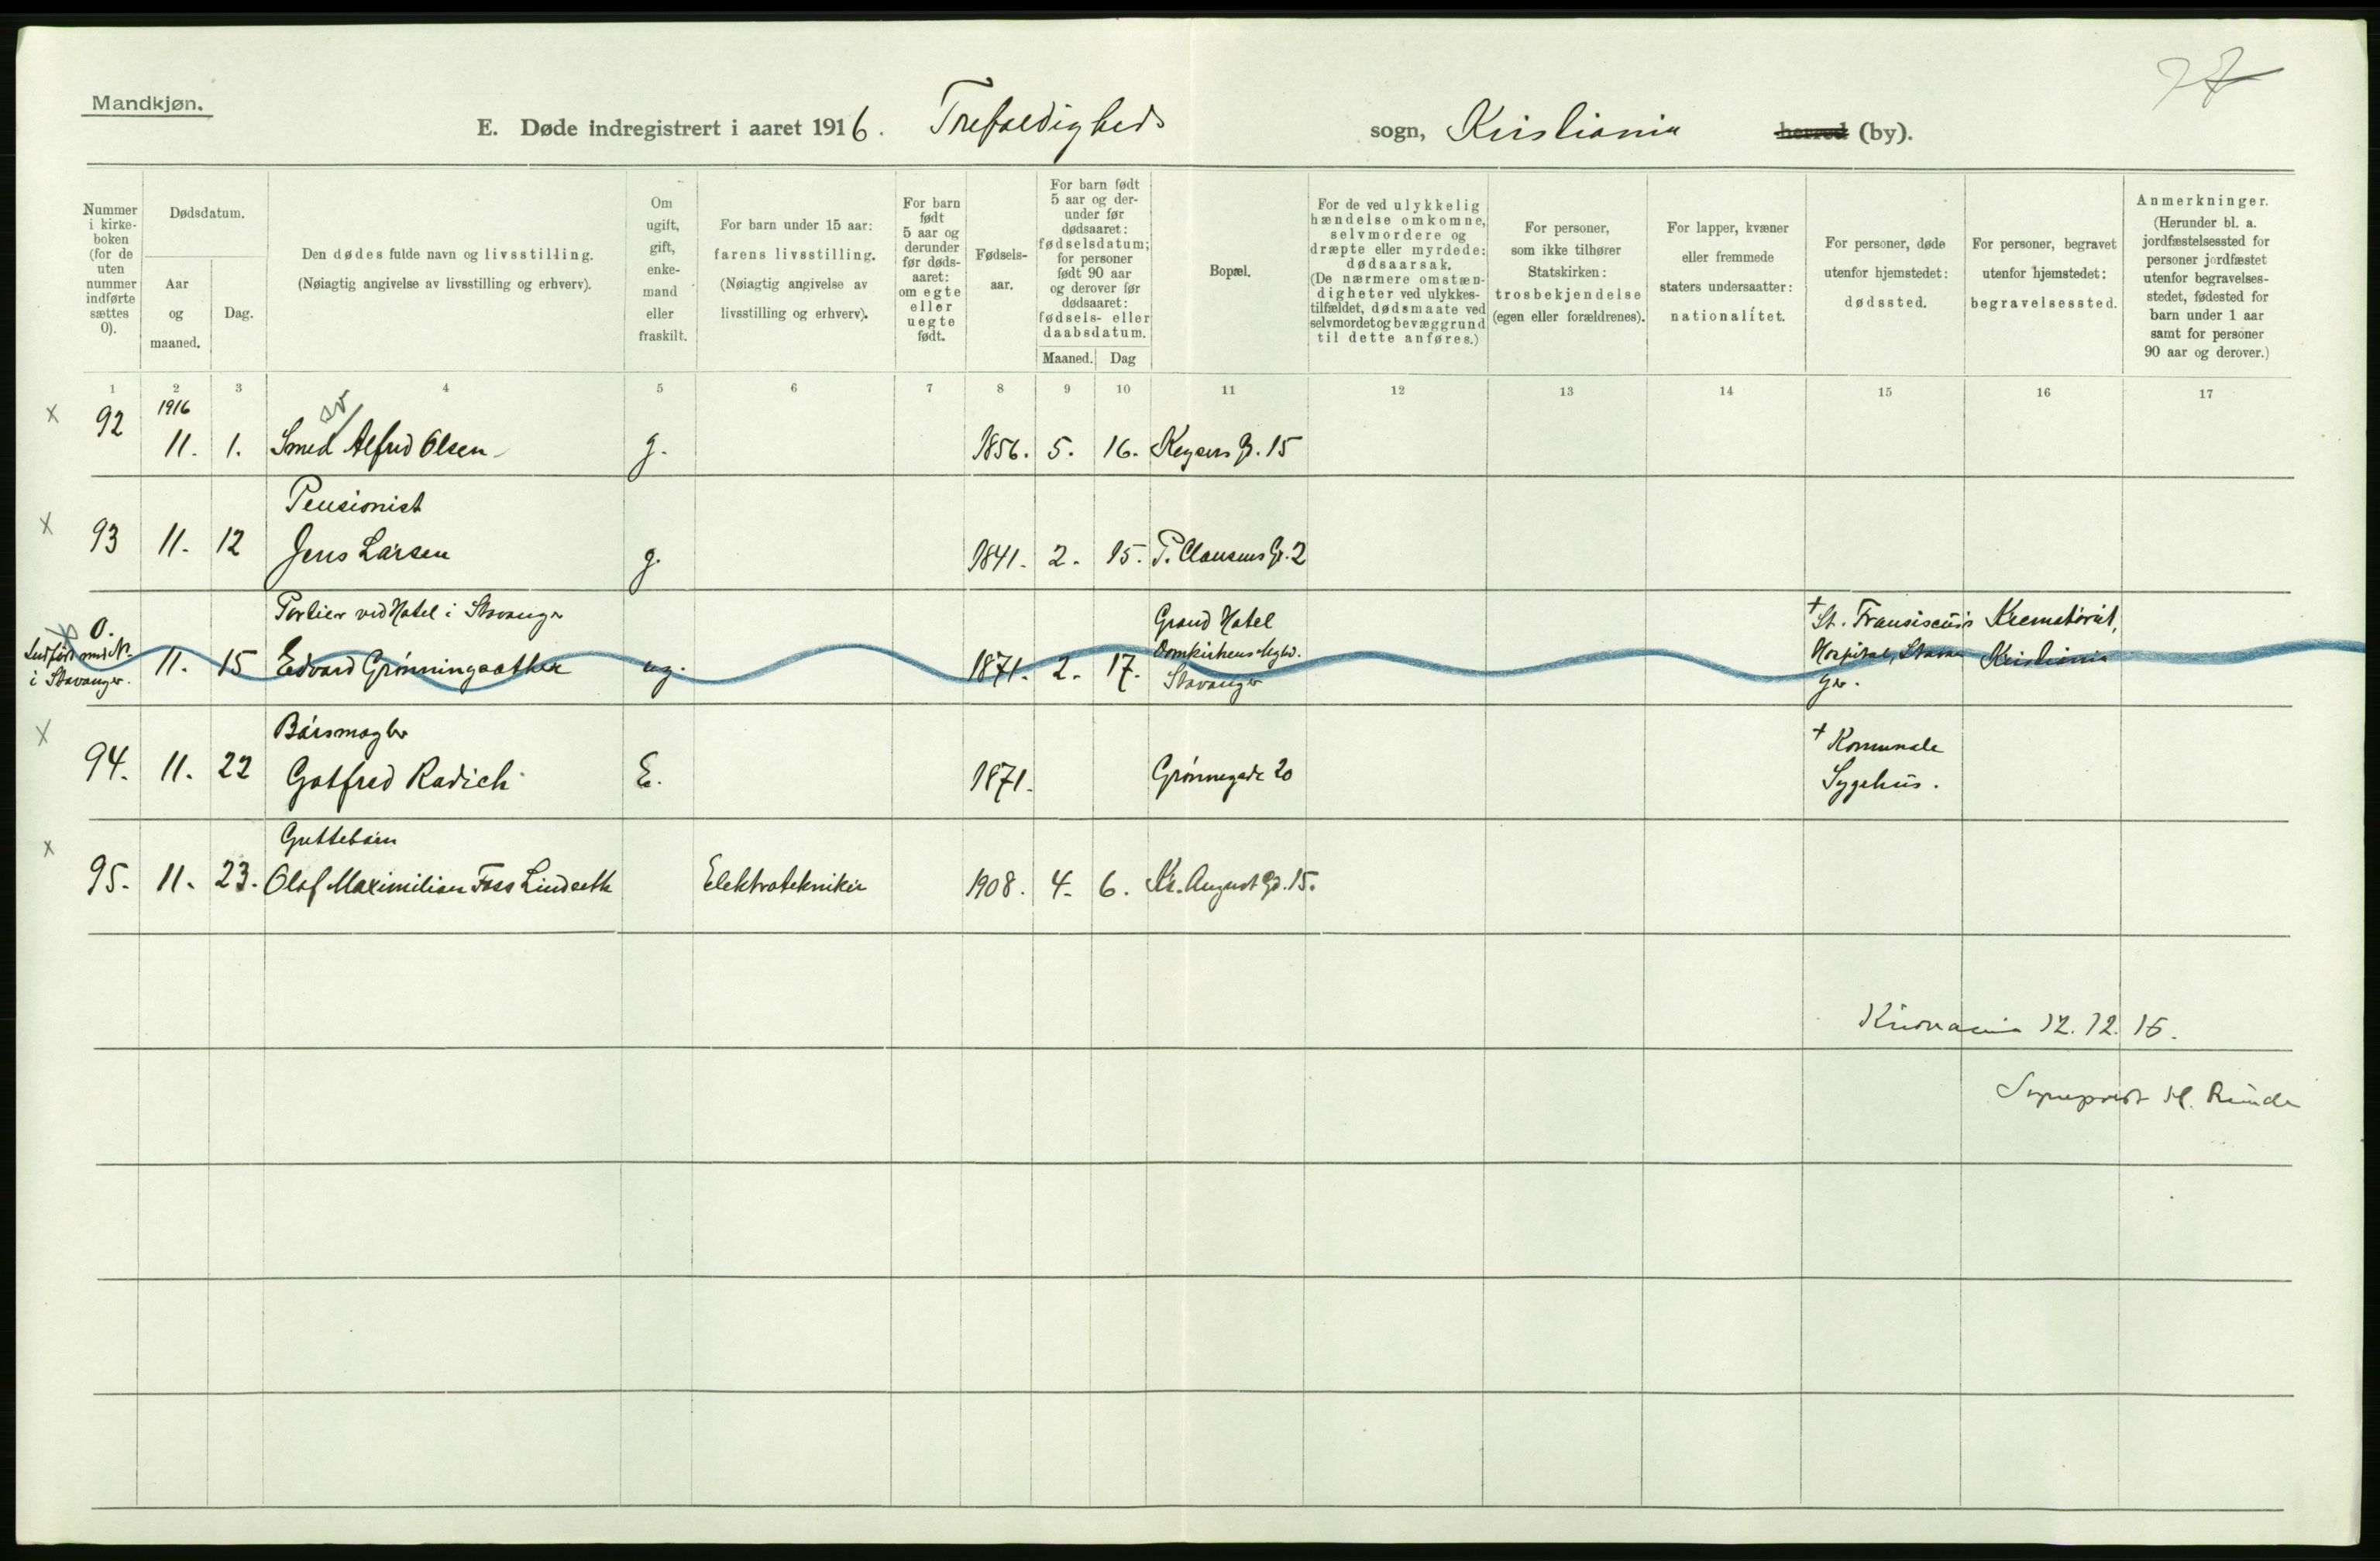 Mandkjøn.
E. Døde indregistrert i aaret 1916. Trefoldigheds sogn, Kristiania herred (by).
Nummer
i kirke-
boken
(for de
uten
nummer
indførte
sættes
0).
Dødsdatum.
Aar
og
maaned.
Dag.
Den dødes fulde navn og livsstilling.
(Nøiagtig angivelse av livsstilling og erhverv).
Om
ugift,
gift,
enke-
mand
eller
fraskilt.
For barn under 15 aar:
farens livsstilling.
(Nøiagtig angivelse av
livsstilling og erhverv).
For barn
født
5 aar og
derunder
før døds-
aaret:
om egte
eller
uegte
født.
Fødsels-
aar.
For barn født
5 aar og der-
under før
dødsaaret:
fødselsdatum;
for personer
født 90 aar
og derover før
dødsaaret:
fødsels- eller
daabsdatum.
Maaned. Dag
Bopæl.
For de ved ulykkelig
hændelse omkomne,
selvmordere og
dræpte eller myrdede:
dødsaarsak.
(De nærmere omstæn-
digheter ved ulykkes-
tilfældet, dødsmaate ved
selvmordet og bevæggrund
til dette anføres.)
For personer,
som ikke tilhører
Statskirken:
trosbekjendelse
(egen eller forældrenes).
For lapper, kvæner
eller fremmede
staters undersaatter:
nationalitet.
For personer, døde
utenfor hjemstedet:
dødssted.
For personer, begravet
utenfor hjemstedet:
begravelsessted.
Anmerkninger.
(Herunder bl. a.
jordfæstelsessted for
personer jordfæstet
utenfor begravelses-
stedet, fødested for
barn under 1 aar
samt for personer
90 aar og derover.)
1 2 3 4 5 6 7 8 9 10 11 12 13 14 15 16 17
1916
x 92 11. 1. Smed Alfred Olsen g. 1856. 5. 16. Keysers G. 15
Pensionist
x 93 11. 12 Jens Larsen g. 1841. 2. 15. P. Clausens G. 2
0. Portier ved Hotel i Stavanger Grand Hotel † St. Fransiscus Krematoriet,
Indført med N. 11. 15 Edvard Grønningsæther ug. 1871. 2. 17. Domkirkens Meghd. Hospital, Stavan Kristiania
i Stavanger. Stavanger ger.
Børsmægler † Kommunale
x 94. 11. 22 Gotfred Radich E. 1871. Grønnegade 20 Sygehus.
Guttebarn
x 95. 11. 23. Olaf Maximilian Foss Lindseth Elektrotekniker 1908. 4. 6. Kr. August Gd. 15.
Kristiania 12. 12. 16.
Sogneprest H. Runde